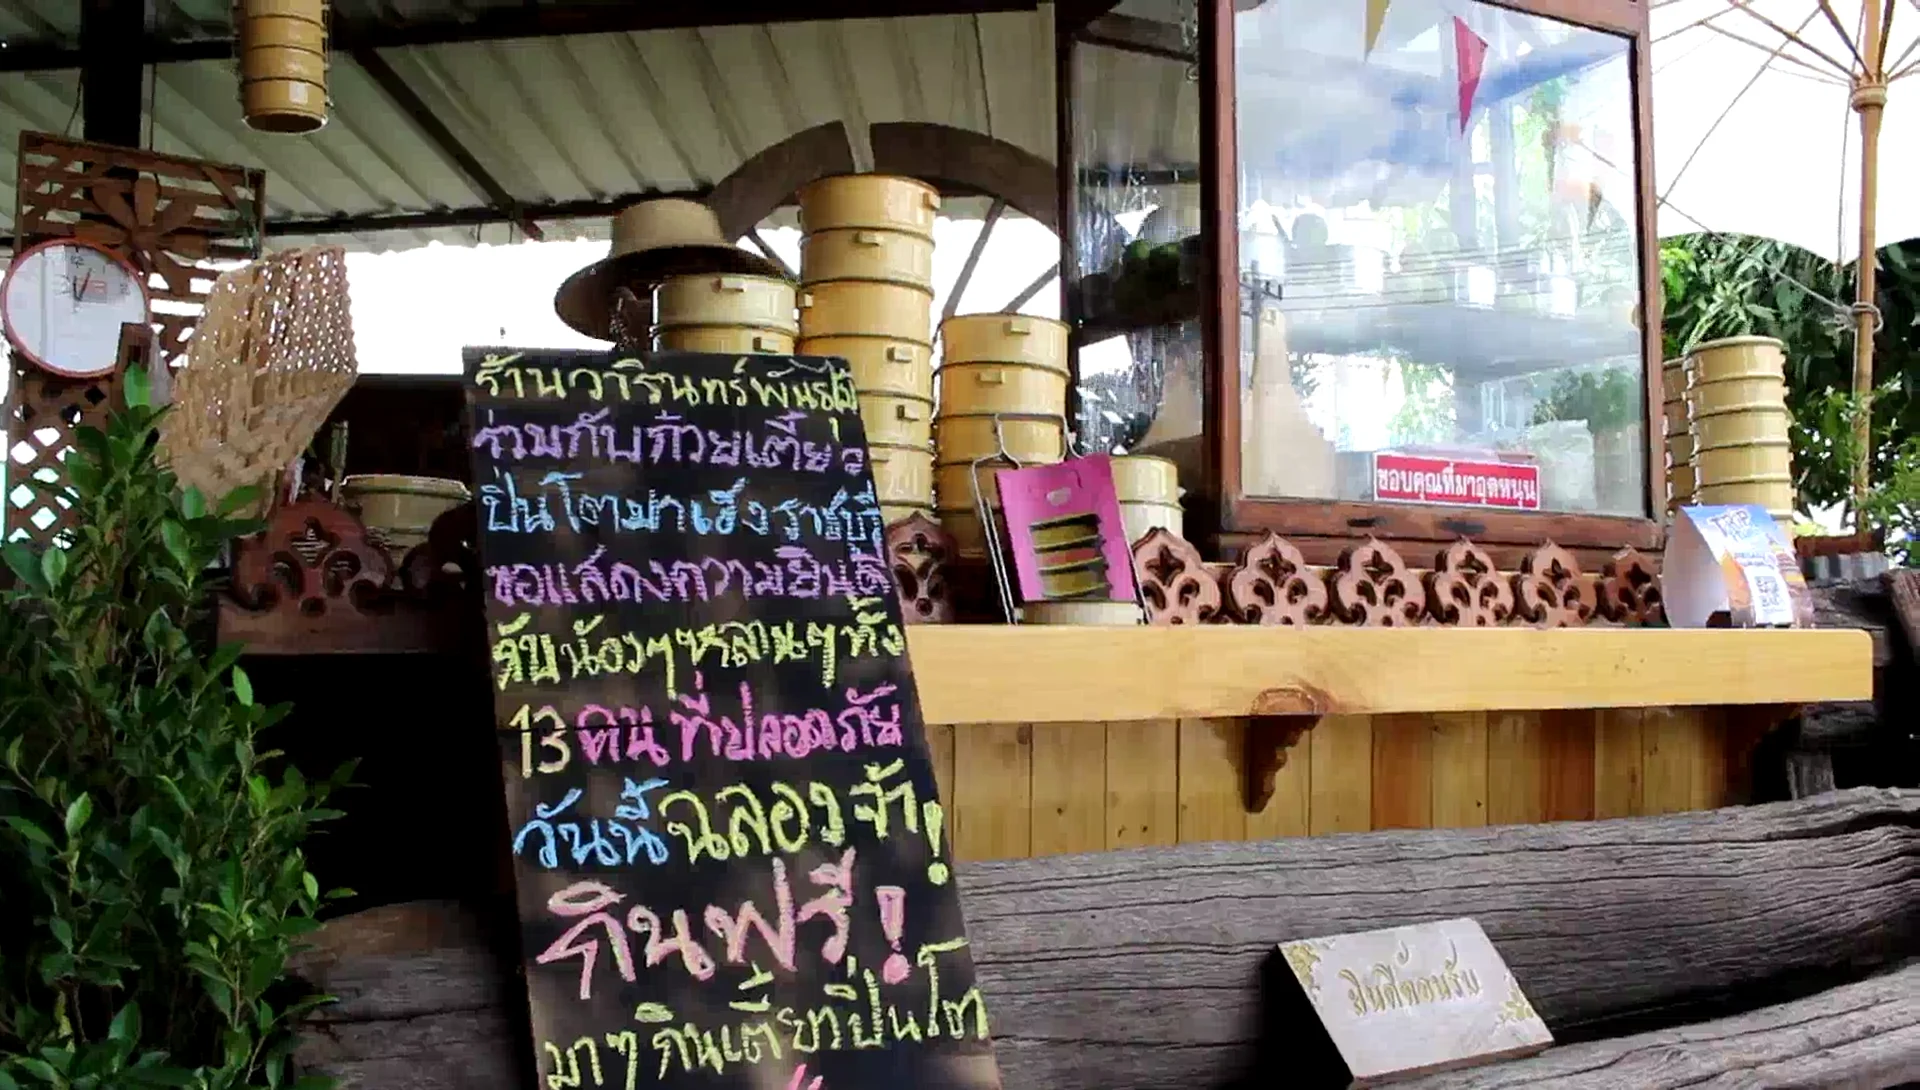 ร้านวารินทร์พันธุ์ไม้
ร่วมกับก๋วยเตี๋ยว
ปิ่นโตมาเร็งราชบุรี
ขอแสดงความยินดี
กับน้องๆหลานๆทั้ง
13 คน ที่ปลอดภัย
วันนี้ฉลองจ้า!
กินฟรี!
มาๆ กินเตี๋ยวปิ่นโต
ขอบคุณที่มาอุดหนุน
TRIP
ยินดีต้อนรับ